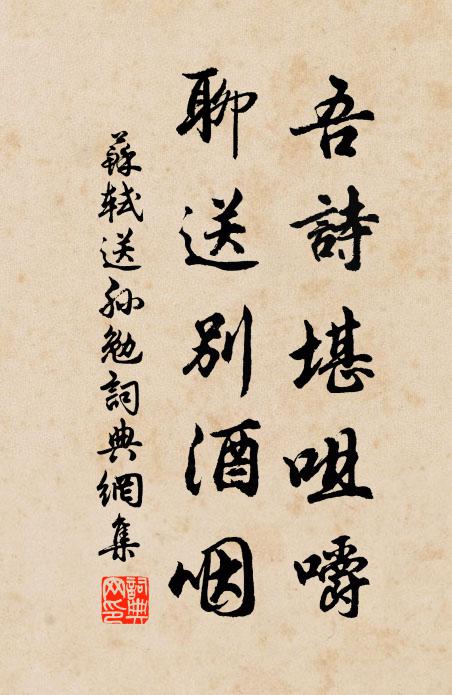 吾詩堪咀嚼
聊送別酒咽
蘇軾送孫勉詞典網集
詞典
网印